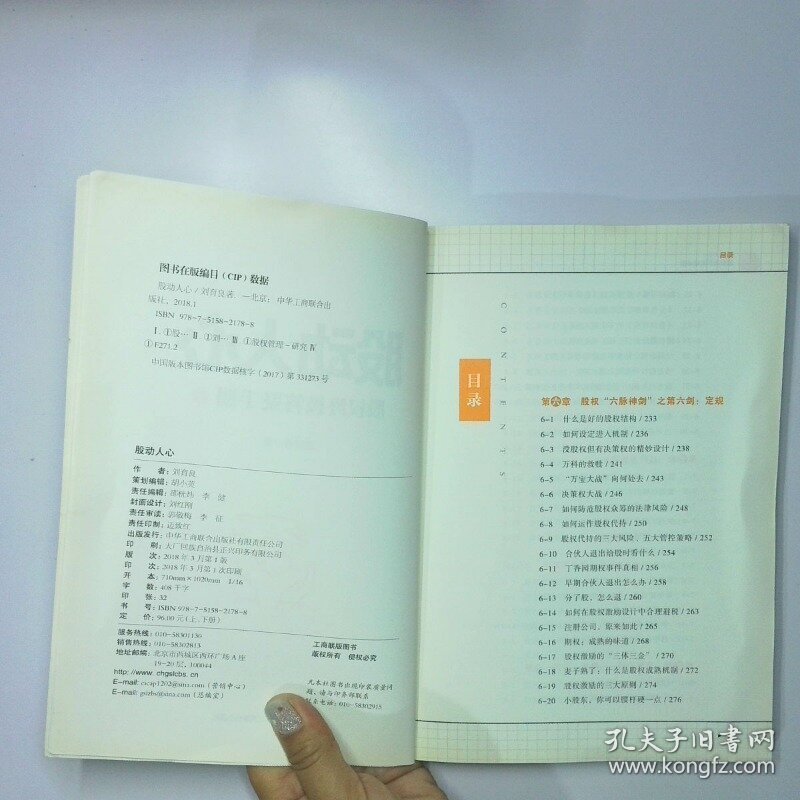 图书在版编目（CIP）数据
股动人心 / 刘育良著. —北京：中华工商联合出
版社，2018.1
ISBN 978-7-5158-2178-8
Ⅰ.①股… Ⅱ.①刘… Ⅲ.①股权管理－研究 Ⅳ.
①F271.2
中国版本图书馆CIP数据核字（2017）第 331273号
股动人心
作 者：刘育良
策划编辑：胡小英
责任编辑：李 健
封面设计：刘红刚
责任审读：郭敬梅 李 征
责任印制：迈致红
出版发行：中华工商联合出版社有限责任公司
印 刷：大厂回族自治县正兴印务有限公司
版 次：2018 年 3 月第 1 版
印 次：2018 年 3 月第 1 次印刷
开 本：710mm×1020mm 1/16
字 数：408 千字
印 张：32
书 号：ISBN 978-7-5158-2178-8
定 价：96.00元（上、下册）
服务热线：010-58301130
销售热线：010-58302813
地址邮编：北京市西城区西环广场 A 座
19-20层，100044
http://www.chgslcbs.cn
E-mail: cicap1202@sina.com（营销中心）
E-mail: gslzbs@sina.com（总编室）
工商联版图书
版权所有 侵权必究
凡本社图书出现印装质量问
题，请与印务部联系
联系电话：010-58302915
目录
CONTENTS
目录
第六章 股权“六脉神剑”之第六剑：定规
6-1 什么是好的股权结构 / 233
6-2 如何设定进入机制 / 236
6-3 没股权但有决策权的精妙设计 / 238
6-4 万科的救赎 / 241
6-5 “万宝大战”向何处去 / 243
6-6 决策权大战 / 246
6-7 如何防范股权众筹的法律风险 / 248
6-8 如何运作股权代持 / 250
6-9 股权代持的三大风险、五大管控策略 / 252
6-10 合伙人退出给股时看什么 / 254
6-11 丁香园期权事件真相 / 256
6-12 早期合伙人退出怎么办 / 258
6-13 分了股，怎么退 / 260
6-14 如何在股权激励设计中合理避税 / 263
6-15 注册公司，原来如此 / 265
6-16 期权：成熟的味道 / 268
6-17 股权激励的“三体三会” / 270
6-18 麦子熟了：什么是股权成熟机制 / 272
6-19 股权激励的三大原则 / 274
6-20 小股东，你可以腰杆硬一点 / 276
孔夫子旧书网
www.kongfz.com